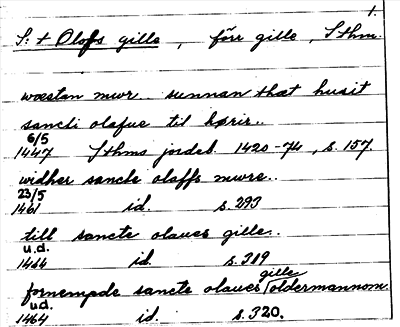 1.
S:t Olofs gille, förr gille, Sthm.
wæstan mwr.. sunnan thæt husit
sancti olafue til hører..
6/5
1447 Sthms jordeb. 1420-74, s. 157.
widher sancte olaffs mwre..
23/5
1461 id. s. 293
till sancte olaues gille..
u.d.
1464 id. s. 319
fornempde sancte olaues gille/oldermannom.
u.d.
1464 id. s. 320.